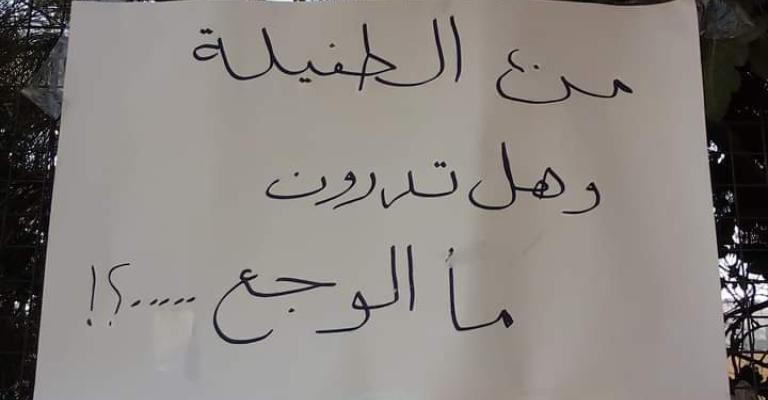 من الطفيلة
وهل تدرون
مأ الوجع .....؟!